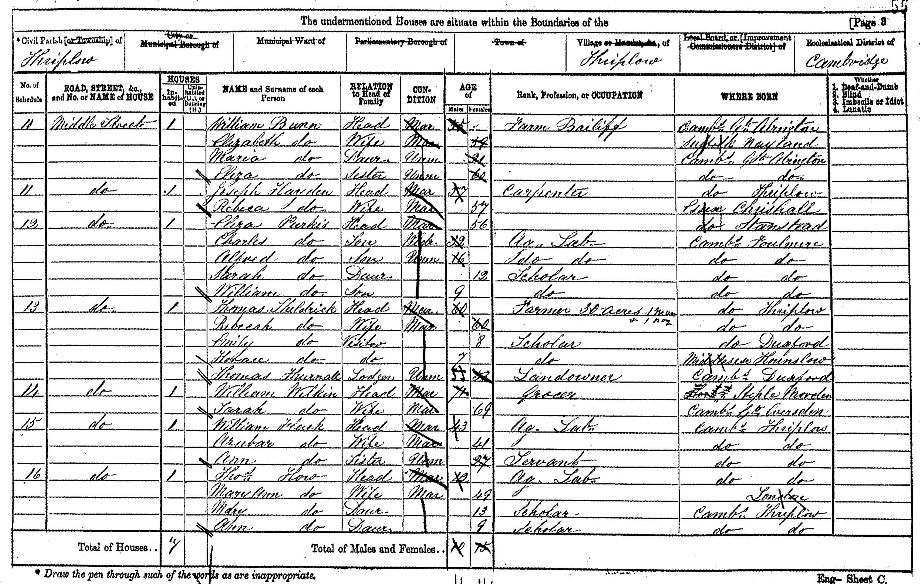 55
The undermentioned Houses are situate within the Boundaries of the [Page 3
*Civil Parish [or Township] of Thriplow
City or Municipal Borough of
Municipal Ward of
Parliamentary Borough of
Town of
Village or Hamlet, &c., of Thriplow
Local Board, or, [Improvement Commissioners District] of
Ecclesiastical District of Cambridge
No. of Schedule
ROAD, STREET, &c., and No. or NAME of HOUSE
HOUSES
Inhabited
Uninhabited (U.), or Building (B.)
NAME and Surname of each Person
RELATION to Head of Family
CONDITION
AGE of
Males Females
Rank, Profession, or OCCUPATION
WHERE BORN
Whether
1. Deaf-and-Dumb
2. Blind
3. Imbecile or Idiot
4. Lunatic
Middle Street 1 William Bunn Head Mar 55 Farm Bailiff Camb. Gt Abington
Elizabeth do Wife Mar Suffolk Nayland
Maria do Daur. Unm 21 Camb. Gt Abington
Eliza do Sister Unm 60 do do
11 do 1 Joseph Head Mar 57 Carpenter do Thriplow
Rebeca do Wife Mar 57 Essex Chrishall
do 1 Eliza Perkis Head 56 do Stanstead
Charles do Son Ag. Lab Camb. Foulmire
Alfred do Son Unm 16 do do do do
Sarah do Daur 12 Scholar do do
William do Son 9 do do do
13 do 1 Thomas Head Mar 60 Farmer 30 Acres 1 man + 1 boy do Thriplow
Rebecah do Wife Mar 60 do do
Emily do Visitor 8 Scholar do Duxford
Horace do do 7 do Middlesex Hounslow
Thomas Lodger Unm Landowner Camb. Duxford
14 do 1 William Wilkin Head Mar Grocer Steple Morden
Sarah do Wife Mar 69 Camb. Gt Eversden
15 do 1 William Head Mar 43 Ag. Lab Camb. Thriplow
do Wife Mar 41 do do
Ann do Sister Unm 27 Servant do do
16 do 1 Thos. How Head Mar Ag. Lab do do
Mary Ann do Wife Mar 49 London
Mary do Daur 13 Scholar Camb. Thriplow
Ann do Daur 9 Scholar do do
Total of Houses.. 7 Total of Males and Females..
* Draw the pen through such of the words as are inappropriate. Eng- Sheet C.